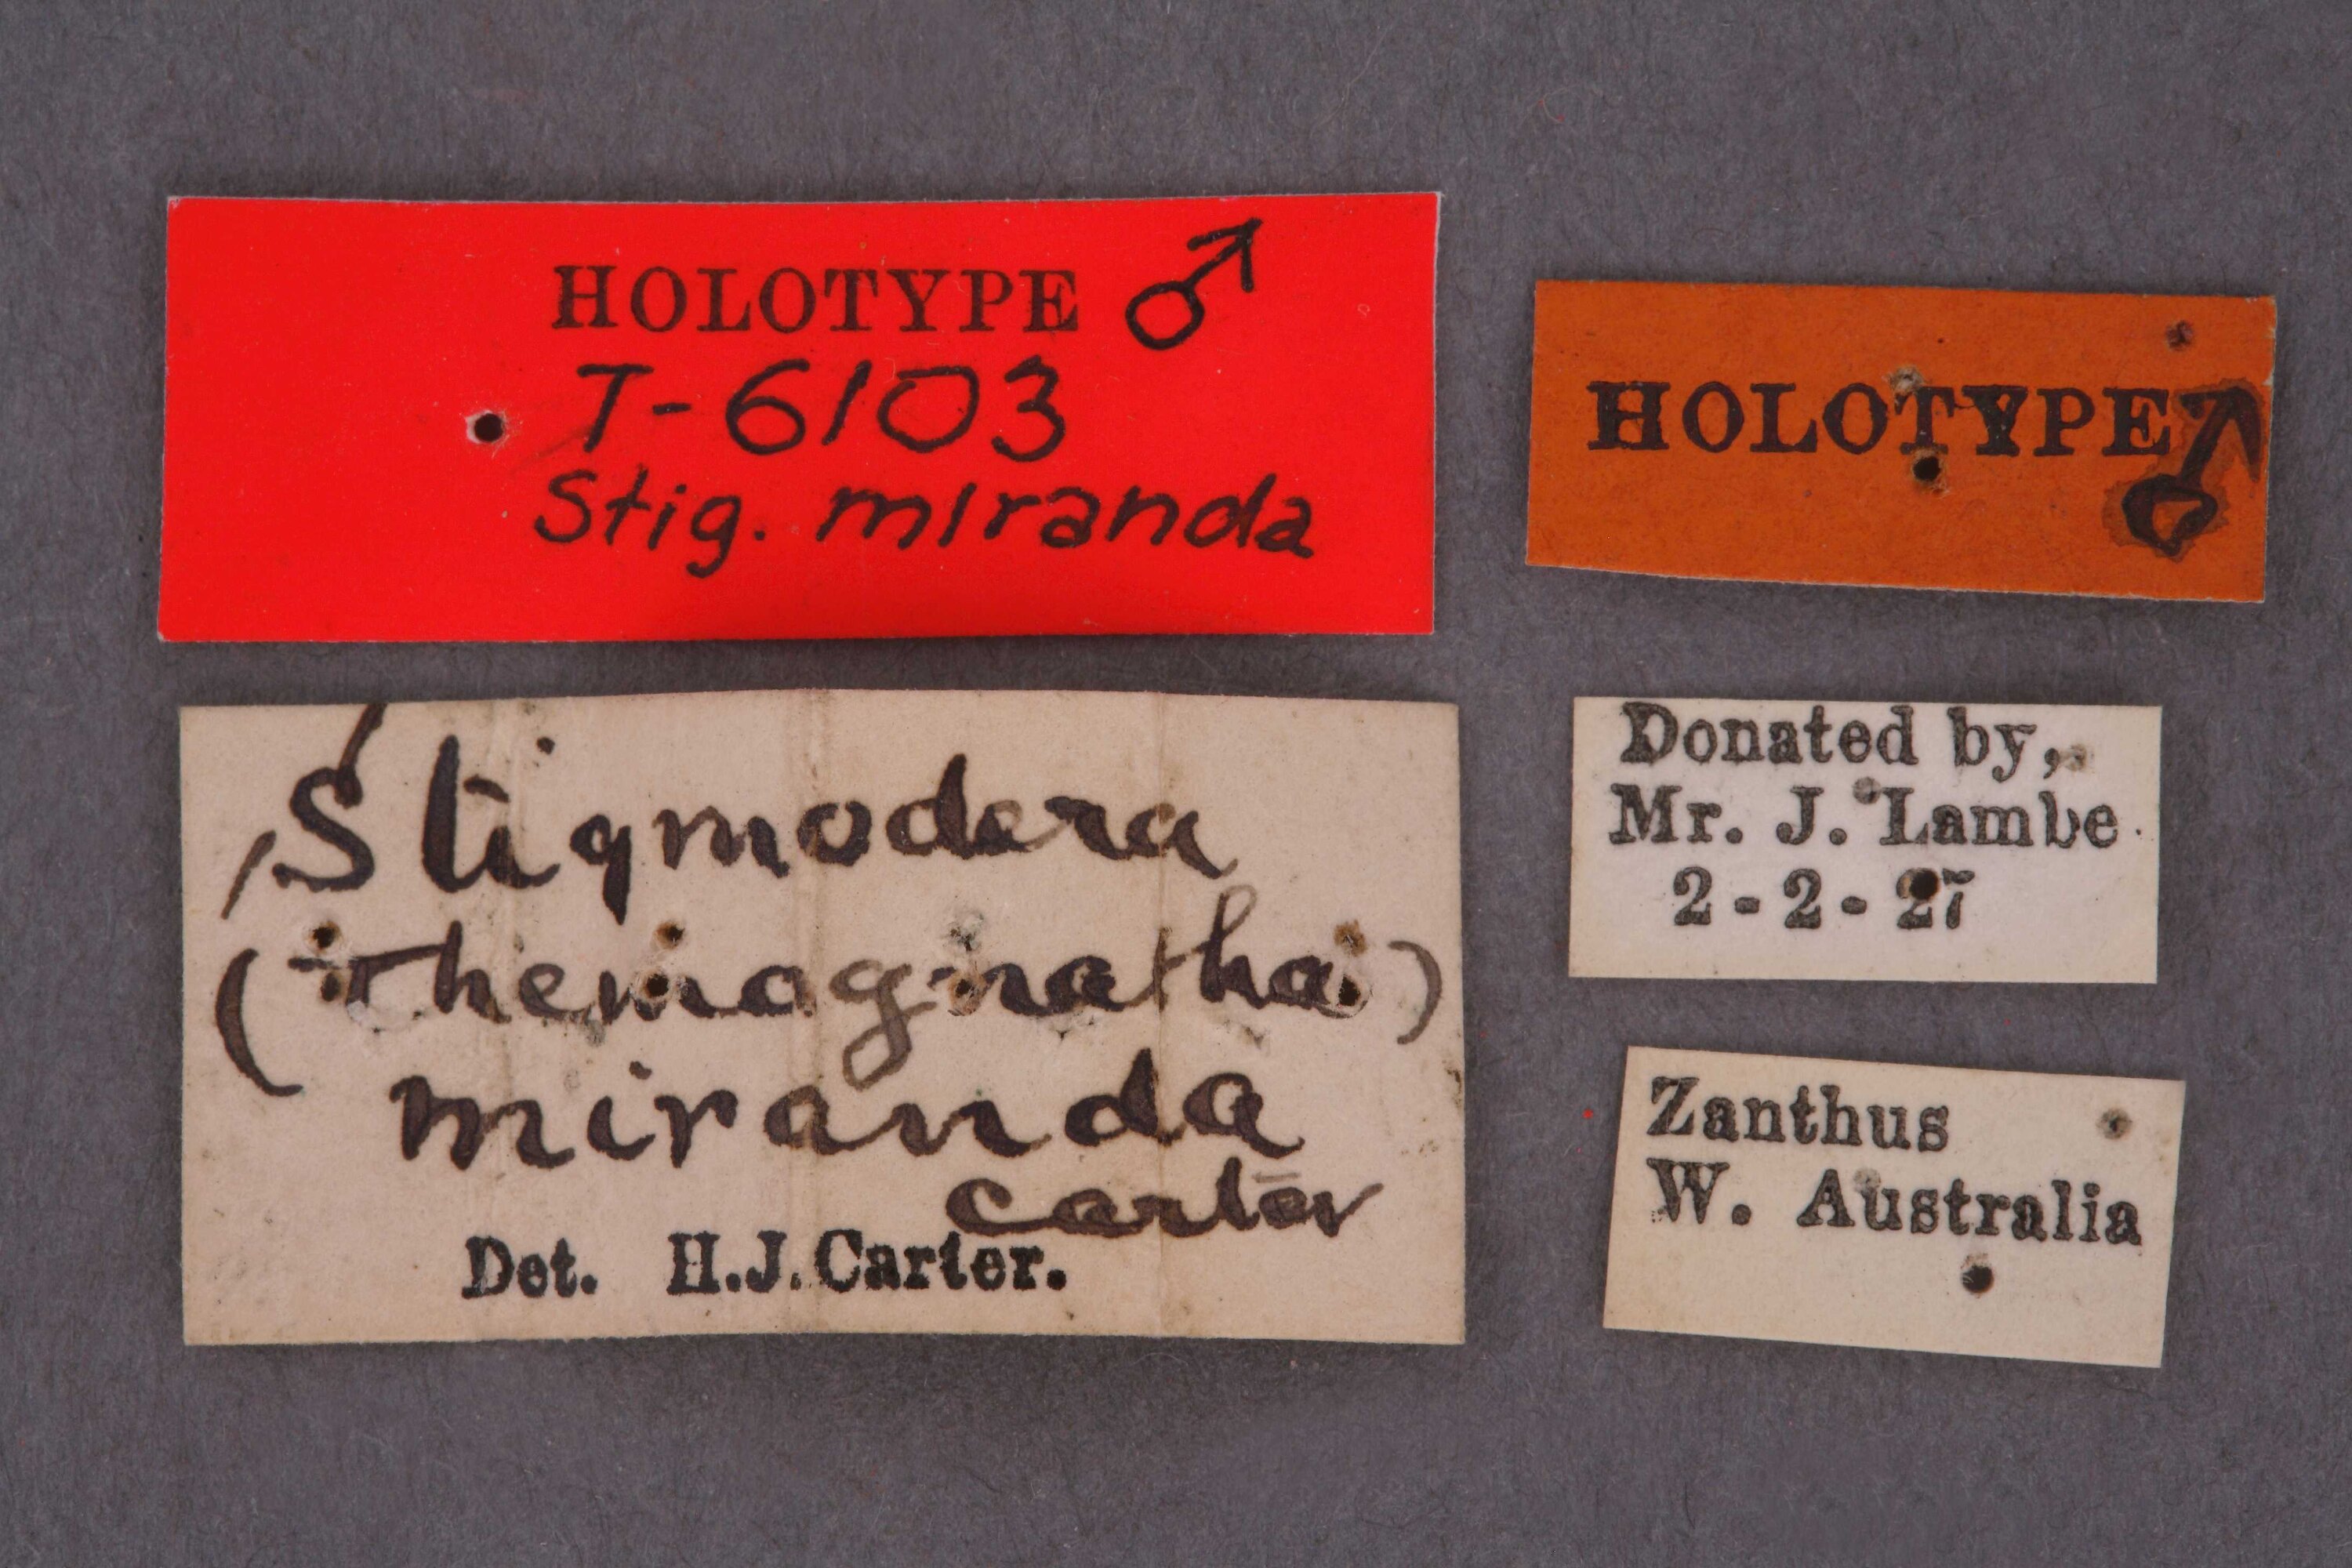 HOLOTYPE ♂
T-6103
Stig. miranda
HOLOTYPE ♂
Stigmodera
(Themognatha)
miranda
Carter
Det. H.J. Carter.
Donated by,
Mr. J. Lambe.
2-2-27
Zanthus
W. Australia